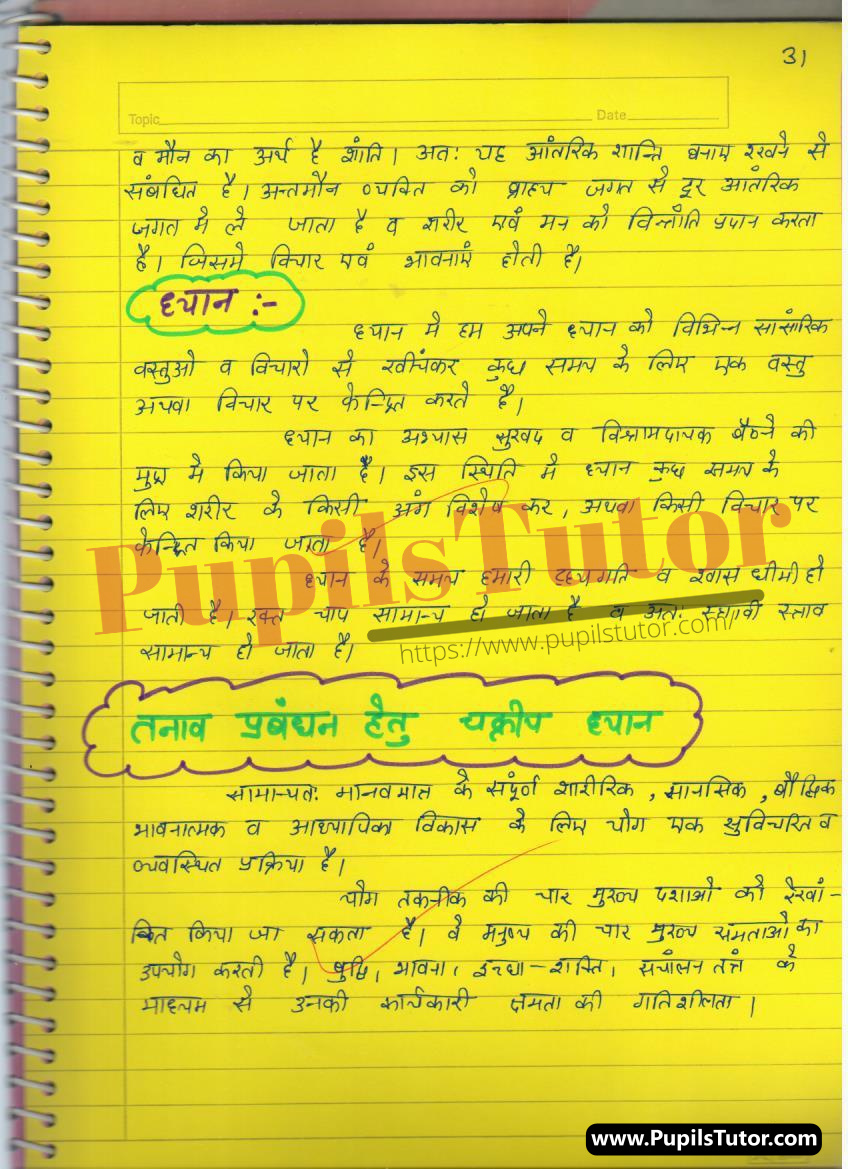 31
Topic
Date
व मौन का अर्थ है शांति। अतः यह आंतरिक शान्ति बनाए रखने से
संबंधित है। अन्तमौन व्यक्ति को ब्राह्य जगत से दूर आंतरिक
जगत मे ले जाता है व शरीर एवं मन को विश्नांति प्रदान करता
है। जिसमे विचार एवं भावनाएं होती है।
ध्यान :-
ध्यान मे हम अपने ध्यान को विभिन्न सांसारिक
वस्तुओ व विचारो से खींचकर कुछ समय के लिए एक वस्तु
अथवा विचार पर केन्द्रित करते है।
ध्यान का अभ्यास सुखद व विश्रामदायक बैठने की
मुद्रा मे किया जाता है। इस स्थिति मे ध्यान कुछ समय के
लिए शरीर के किसी अंग विशेष कर, अथवा किसी विचार पर
केन्द्रित किया जाता है।
ध्यान के समय हमारी हृदयगति व श्वास धीमी हो
जाती है। रक्त चाप सामान्य हो जाता है व अतः स्त्रावी स्त्राव
सामान्य हो जाता है।
PupilsTutor
https://www.pupilstutor.com/
तनाव प्रबंधन हेतु यक्रीय ध्यान
सामान्यतः मानवमात्र के संपूर्ण शारीरिक, मानसिक, बौद्धिक
भावनात्मक व आध्यात्मिक विकास के लिए योग एक सुविचरित व
व्यवस्थित प्रक्रिया है।
योग तकनीक की चार मुख्य दशाओ को रेखां-
कित किया जा सकता है। वे मनुष्य की चार मुख्य क्षमताओ का
उपयोग करती है। बुद्धि, भावना, इच्छा-शक्ति, संचालन तंत्र के
माध्यम से उनकी कार्यकारी क्षमता की गतिशीलता।
www.PupilsTutor.com